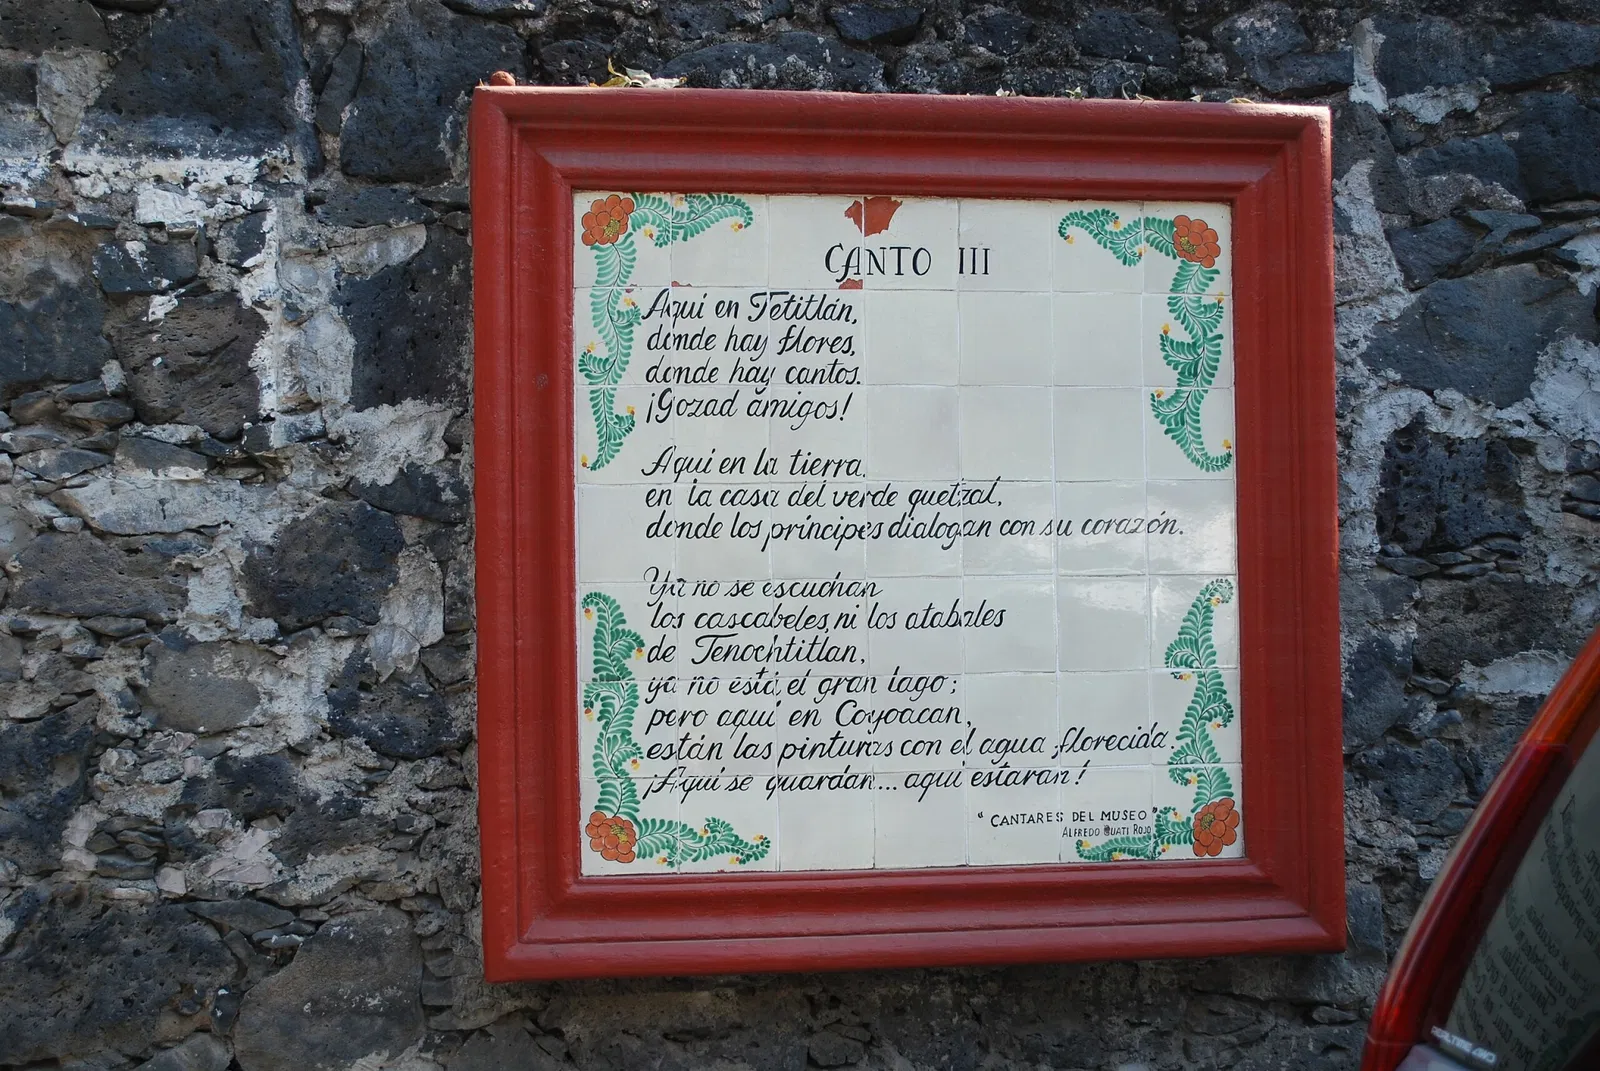 CANTO III
Aquí en Tetitlán,
donde hay flores,
donde hay cantos.
¡Gozad amigos!
Aquí en la tierra.
en la casa del verde quetzal,
donde los príncipes dialogan con su corazón.
Ya no se escuchan
los cascabeles, ni los atabales
de Tenochtitlan,
ya no está, el gran lago;
pero aquí en Coyoacan,
están las pinturas con el agua florecida.
¡Aquí se guardan... aquí estaran!
"CANTARES DEL MUSEO"
ALFREDO GUATI ROJO